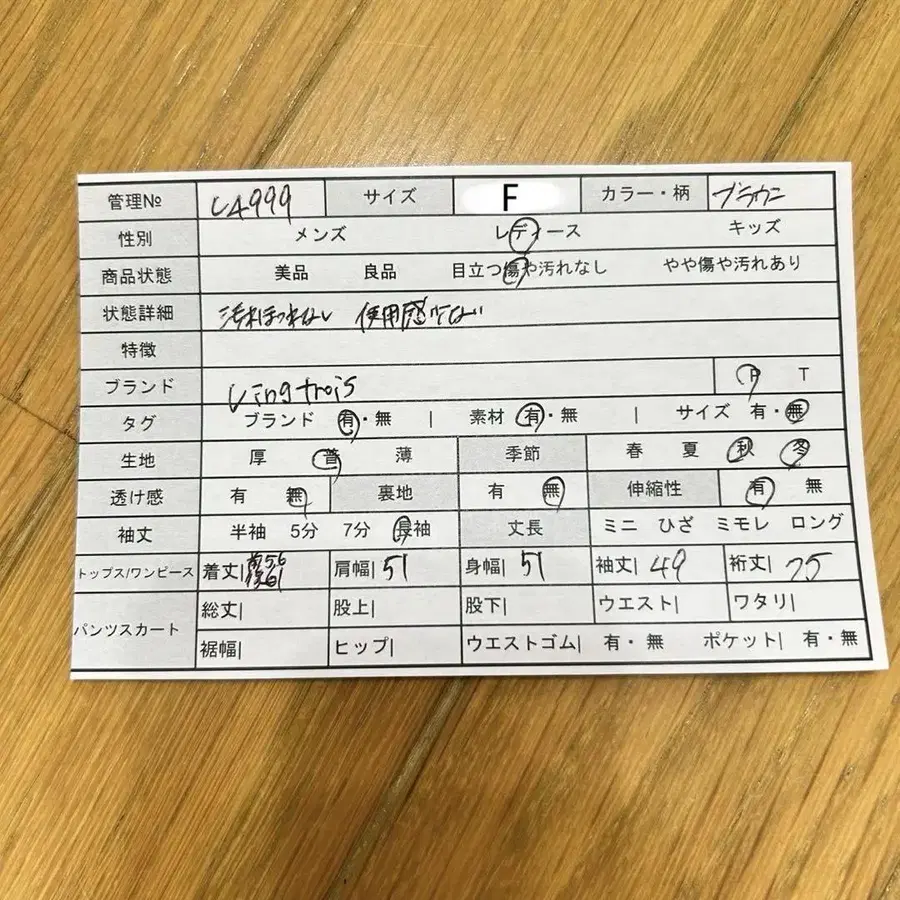 管理№ L4999 サイズ F カラー・柄 ブラウン
性別 メンズ レディース キッズ
商品状態 美品 良品 目立つ傷や汚れなし やや傷や汚れあり
状態詳細 汚れほつれなし 使用感少ない
特徴
ブランド Vingtrois P T
タグ ブランド 有・無 | 素材 有・無 | サイズ 有・無
生地 厚 普 薄 季節 春 夏 秋 冬
透け感 有 無 裏地 有 無 伸縮性 有 無
袖丈 半袖 5分 7分 長袖 丈長 ミニ ひざ ミモレ ロング
トップス/ワンピース 着丈| 前56 後61 肩幅| 51 身幅| 51 袖丈| 49 裄丈| 75
パンツスカート 総丈| 股上| 股下| ウエスト| ワタリ|
裾幅| ヒップ| ウエストゴム| 有・無 ポケット| 有・無